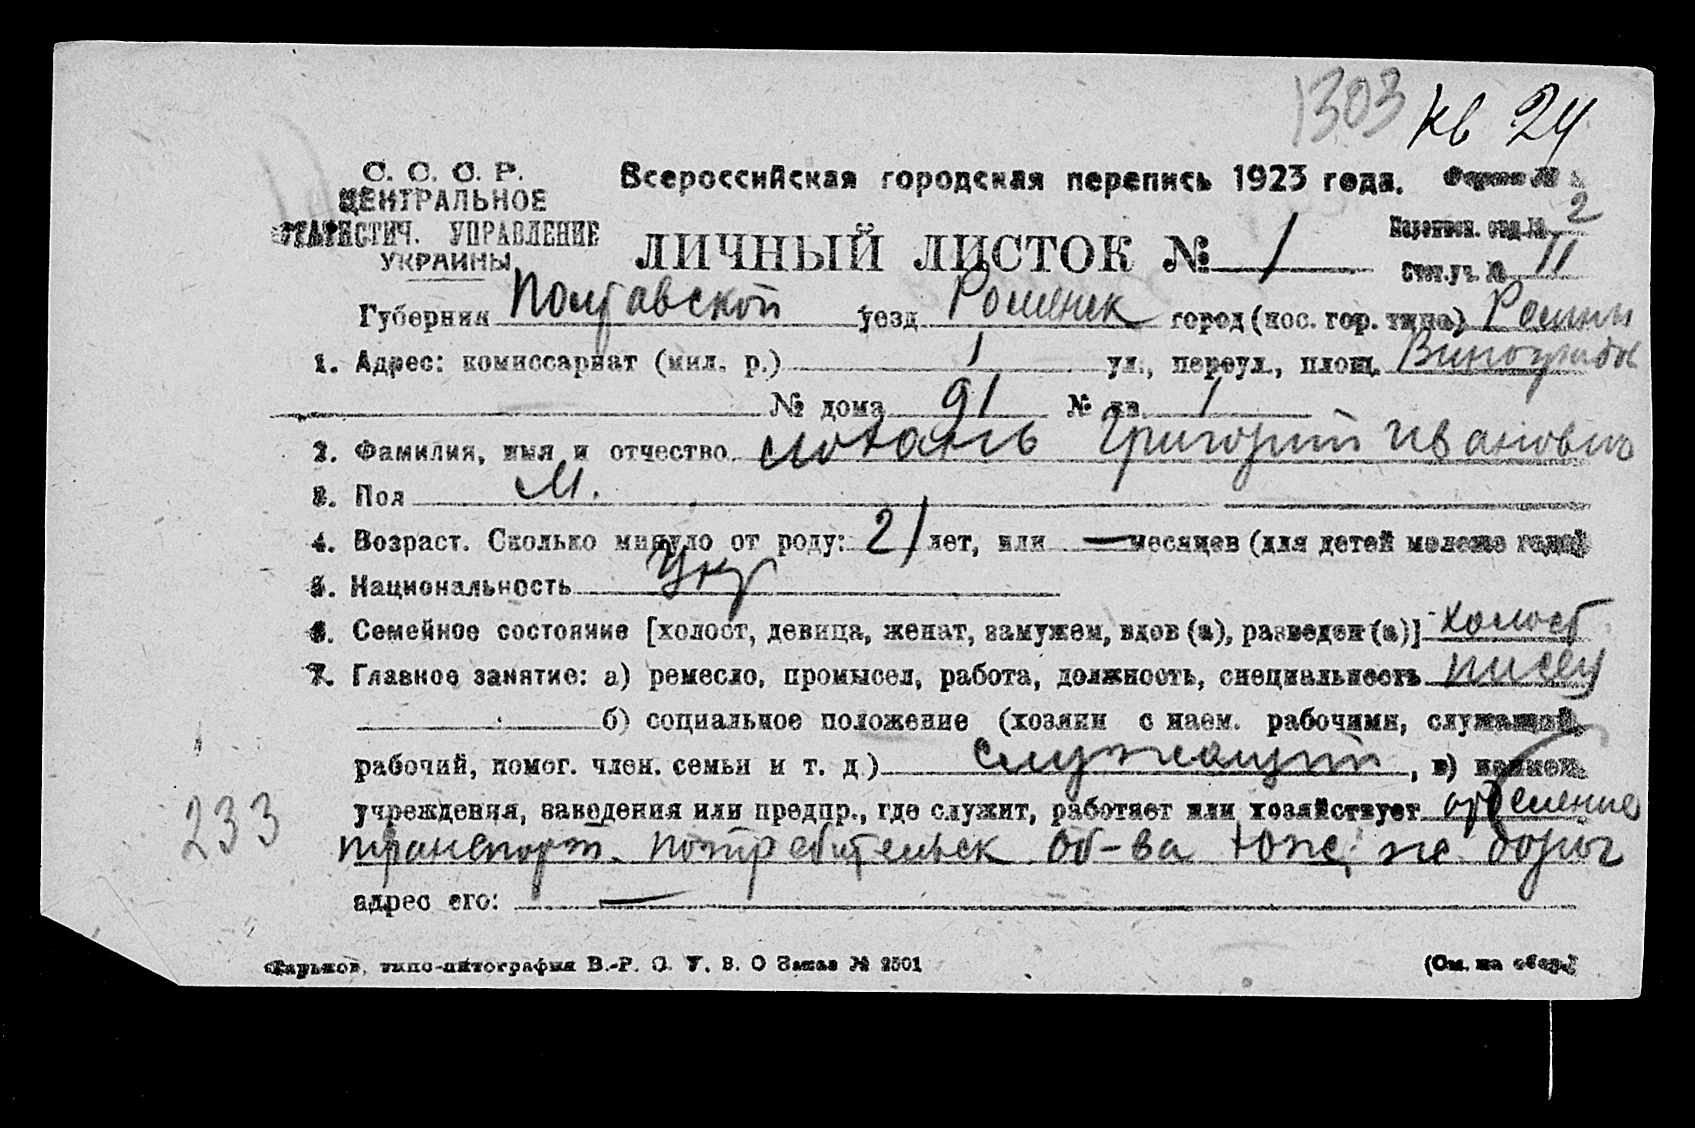 1303 кв 24
С. С. С. Р. Всероссийская городская перепись 1923 года. Форма №
ЦЕНТРАЛЬНОЕ
СТАТИСТИЧ. УПРАВЛЕНИЕ
УКРАИНЫ
Переписн. отд. № 2
ЛИЧНЫЙ ЛИСТОК № 1
Счетн. уч. № 11
Губерния Полтавской уезд Роменск город (пос. гор. типа) Ромны
1. Адрес: комиссариат (мил. р.) 1 ул., переул., площ.
№ дома 91 № кв. 1
2. Фамилия, имя и отчество Григорий Иванович
3. Пол М.
4. Возраст. Сколько минуло от роду: 21 лет, или — месяцев (для детей моложе года)
5. Национальность Укр
6. Семейное состояние [холост, девица, женат, замужем, вдов (а), разведен (а)] холост
7. Главное занятие: а) ремесло, промысел, работа, должность, специальность писец
б) социальное положение (хозяин с наем. рабочими, служащий,
рабочий, помог. член. семьи и т. д.) служащий, в) наимен.
учреждения, заведения или предпр., где служит, работает или хозяйствует отделение
транспорт. потребительск об-ва Южн. ж. дорог
233
адрес его: —
Харьков, типо-литография В.-Р. С. У. В. О Заказ № 2501 (См. на обор.)